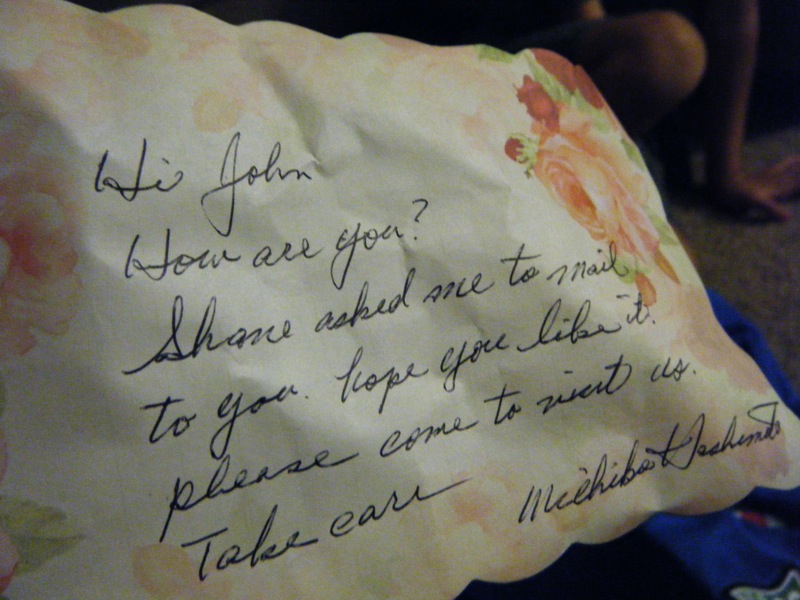 Hi John
How are you?
Shane asked me to mail
to you. hope you like it.
please come to visit us.
Take care
Michiko Hashimoto